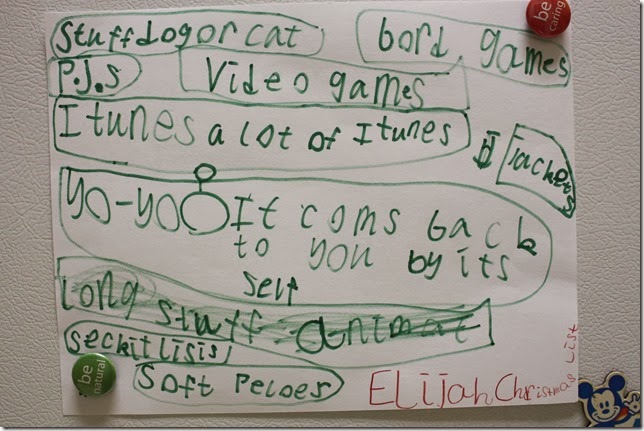 stuffdogorcat
bord games
P.J.s
Video games
Itunes a lot of Itunes
Jackets
yo-yo It coms back
to you by its
self
long stuff animal
seckitlisis
Soft peloes
Elijah Christmas List
be caring
be natural